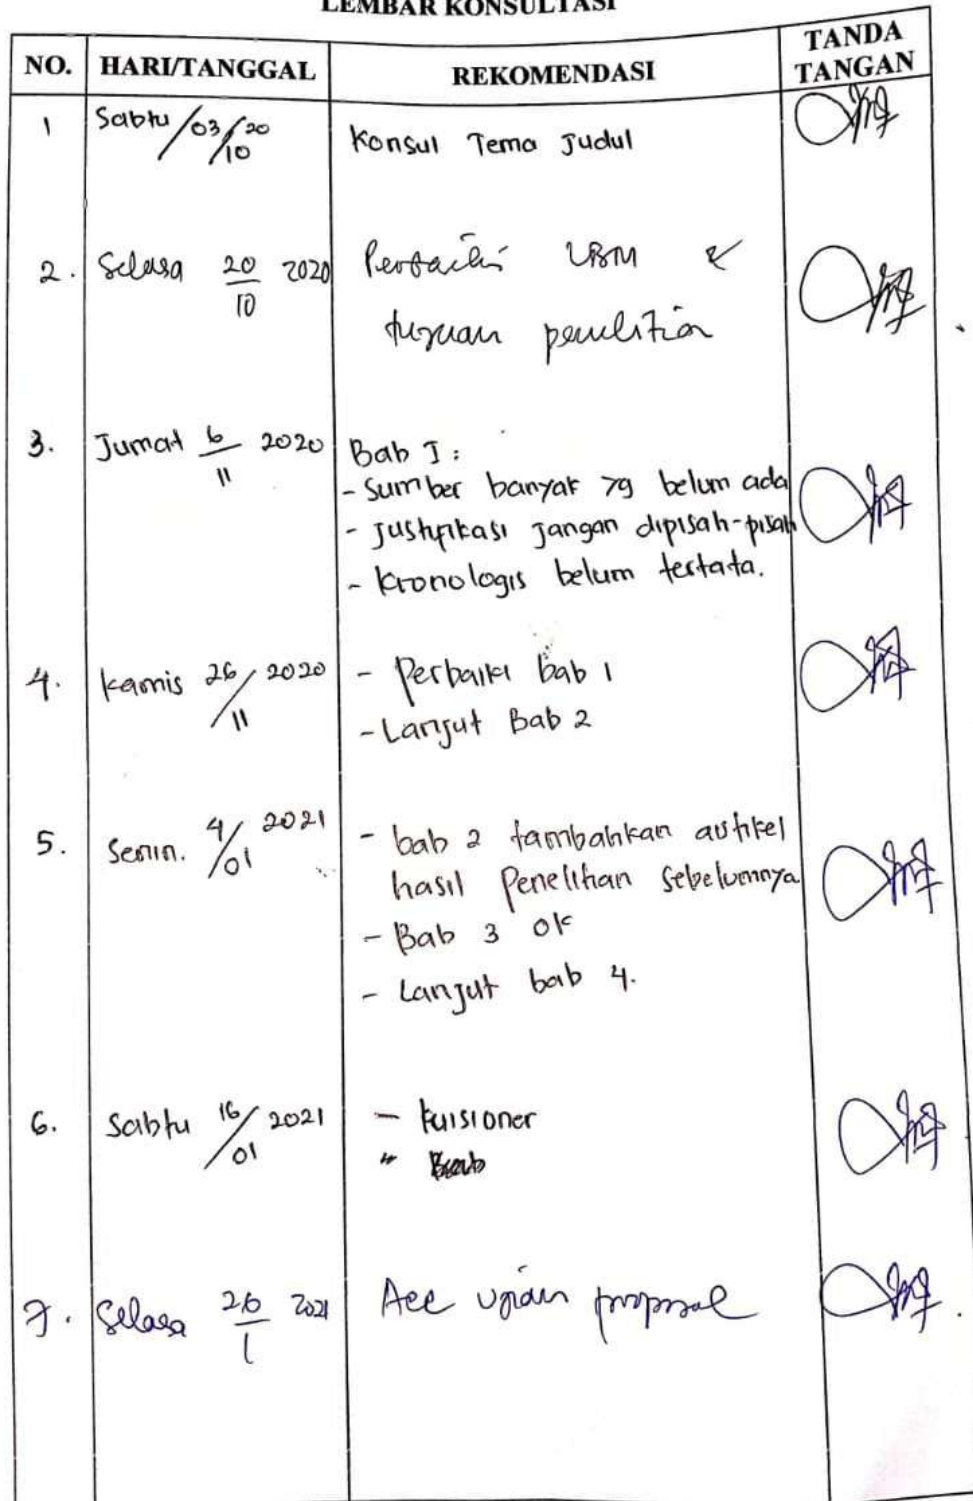 LEMBAR KONSULTASI
NO. HARI/TANGGAL REKOMENDASI TANDA TANGAN
1 Sabtu /03/10 20 Konsul Tema Judul
2. Selasa 20/10 2020 Perbaiki LBM &
tujuan penelitian
3. Jumat 6/11 2020 Bab I :
- Sumber banyak yg belum ada
- Justifikasi jangan dipisah-pisah
- kronologis belum tertata.
4. kamis 26/11 2020 - Perbaiki bab 1
- Lanjut Bab 2
5. Senin. 4/01 2021 - bab 2 tambahkan artikel
hasil Penelitian sebelumnya
- Bab 3 ok
- Lanjut bab 4.
6. Sabtu 16/01 2021 - kuisioner
7. Selasa 26/1 2021 Acc ujian proposal